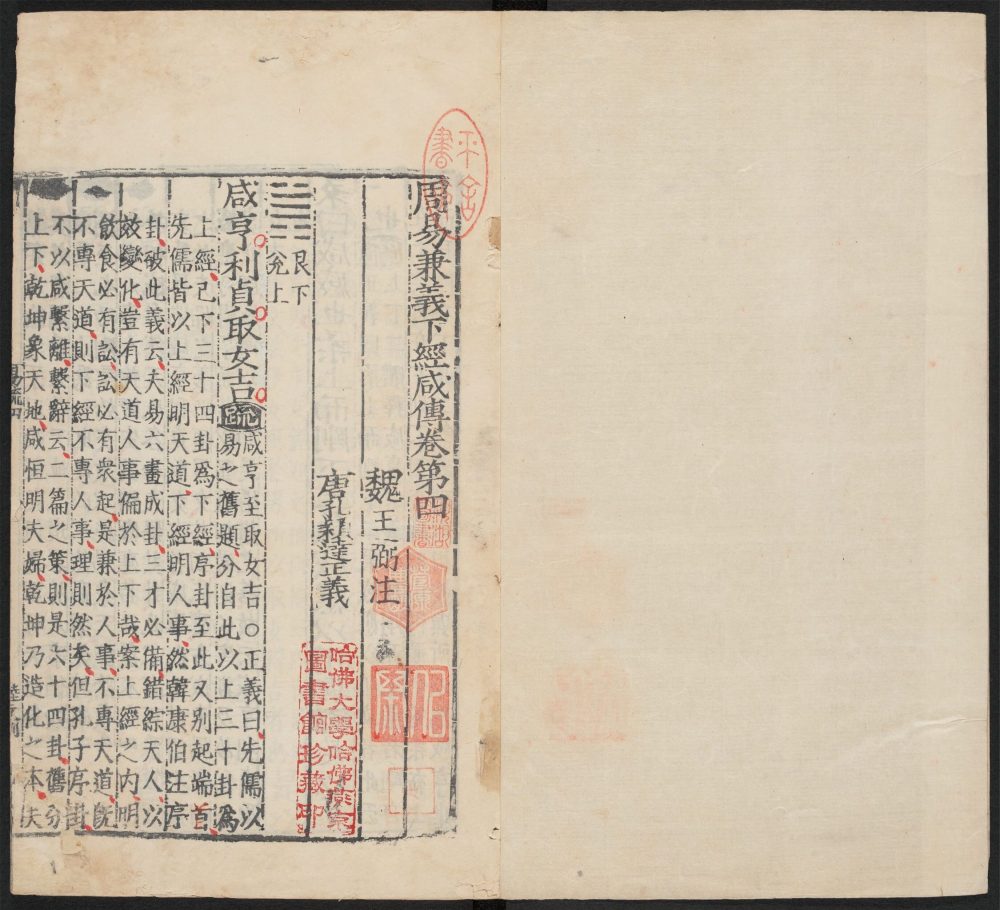 周易兼義下經咸傳卷第四
魏王弼注
唐孔穎達正義
艮下
兊上
咸亨利貞取女吉疏咸亨至取女吉○正義曰先儒以
易之舊題分自此以上三十卦爲
上經已下三十四卦爲下經序卦至此又别起端首
先儒皆以上經明天道下經明人事然韓康伯注序
卦破此義云夫易六畫成卦三才必備錯綜天人以
效變化豈有天道人事偏於上下哉案上經之内明
飲食必有訟訟必有衆起是兼於人事不專天道旣
不專天道則下經不專人事理則然矣但孔子序卦
不以咸繫離繫辭云二篇之策則是六十四卦舊分
上下乾坤象天地咸恒明夫婦乾坤乃造化之本夫
哈佛大學哈佛燕京
圖書館珍藏印